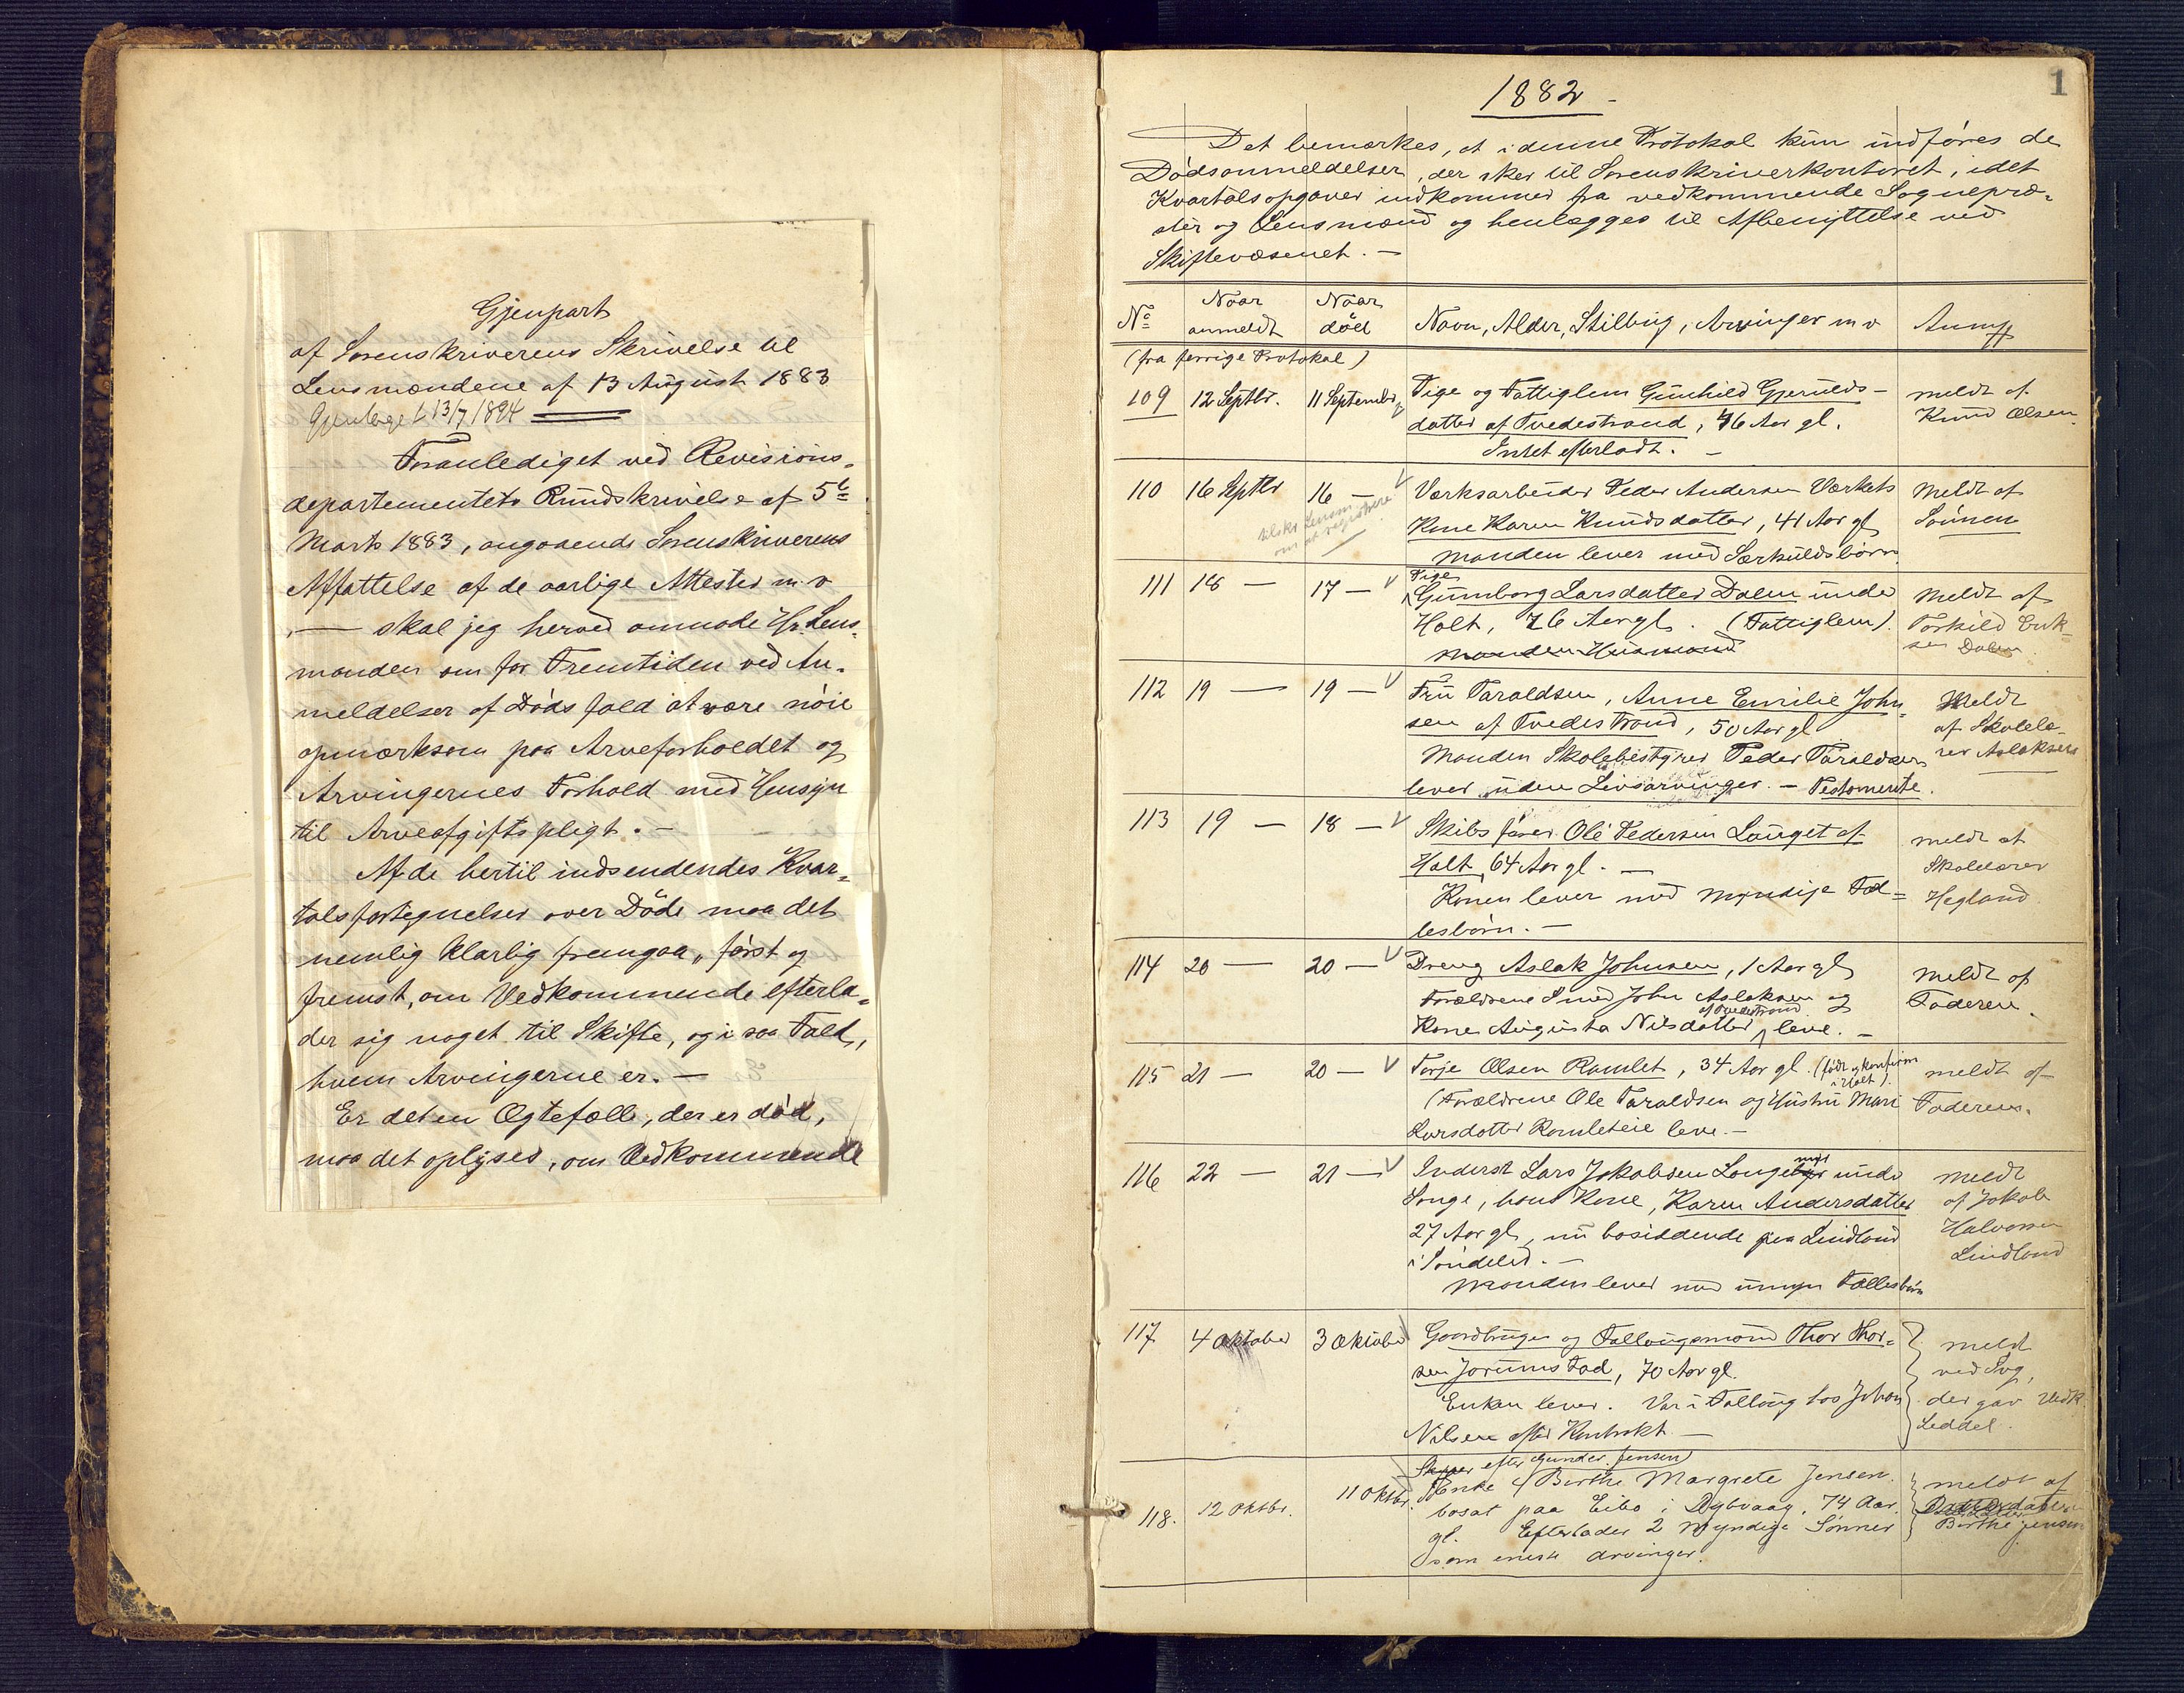 Gjenpart
af Sorenskriverens Skrivelse til
Lensmændene af 13 August 1883
Gjentaget 13/7 1894
Foranlediget ved Revisions-
departementets Rundskrivelse af 5te
Marts 1883, angaaende Sorenskriverens
Affattelse af de aarlige Attester m. v
— skal jeg herved anmode Hr. Lens-
manden om for Fremtiden ved An-
meldelser af Dødsfald at være nøie
opmærksom paa Arveforholdet og
Arvingernes Forhold med Hensyn
til Arveafgiftspligt. —
Af de hertil indsendendes Kvar-
talsfortegnelser over Døde maa det
nemlig klarlig fremgaa, først og
fremst, om Vedkommende efterla-
der sig noget til Skifte, og i saa Fald,
hvem Arvingerne er. —
Er det en Ægtefælle, der er død,
maa det oplyses, om Vedkommende
1
1882 -
Det bemærkes, at i denne Protokol kun indføres de
Dødsanmeldelser, der sker til Sorenskriverkontoret, idet
Kvartalsopgaver indkommer fra vedkommende Sognepræ-
ster og Lensmænd og henlægges til Afbenyttelse ved
Skiftevæsenet. —
No Naar anmeldt Naar død Navn, Alder, Stilling, Arvinger m v Anmk
(fra forrige Protokol)
109 12 Septbr. 11 September Pige og Fattiglem Gunhild Gjerulds- meldt af
datter af Tvedestrand, 76 Aar gl. Knud Olsen.
Intet efterladt. —
110 16 Septbr 16 — Værksarbeider Peder Andersen Værkets Meldt af
Kone Karen Knudsdatter, 41 Aar gl Sønnen
tilskr Lensm. om at registrere
Manden lever med Særkuldsbørn
111 18 — 17 — Pige
Gunborg Larsdatter Dalen under Meldt af
Holt, 76 Aar gl. (Fattiglem). Torkild Erik-
Manden Husmand sen Dalen.
112 19 — 19 — Fru Taraldsen, Anne Emilie John- Meldt
sen af Tvedestrand, 50 Aar gl af Skolelæ-
Manden Skolebestyrer Peder Taraldsen rer Aslaksen
lever uden Livsarvinger. — Testamente.
113 19 — 18 — Skibsfører Ole Pedersen Lauget af meldt af
Holt, 64 Aar gl. — Skolelærer
Konen lever med myndige Fæl- Hegland.
lesbørn. —
114 20 — 20 — Dreng Aslak Johnsen, 1 Aar gl Meldt af
Forældrene Smed John Aslaksen og Faderen.
Kone Augusta Nilsdatter af Tvedestrand leve. —
115 21 — 20 — Torje Olsen Ramlet, 34 Aar gl. (født og konfirm i Holt). meldt af
(Forældrene Ole Taraldsen og Hustru Mari Faderen.
Larsdatter Ramleteie leve. —
116 22 — 21 — Inderst Lars Jakobsen Songe under meldt
Songe, hans Kone, Karen Andersdatter af Jakob
27 Aar gl, nu bosiddende paa Lindland Halvorsen
i Søndeled. — Lindland
Manden lever med umyn Fællesbørn
117 4 Oktober 3 Oktober Gaardbruger og Follaugsmand Thor Thor- meldt
sen Jorunstad, 70 Aar gl. ved Svg,
Enken lever. Var i Follaug hos Johan der gav Vedk
Nilsen efter Kontrakt — Seddel.
118. 12 Oktbr. 11 Oktbr. Enke efter Skipper Gunder Jensen
Birthe Margrete Jensen. meldt af
bosat paa Eibo i Dybvaag, 74 Aar
gl. Efterlader 2 myndige Sønner Birthe Jensen
som eneste arvinger.